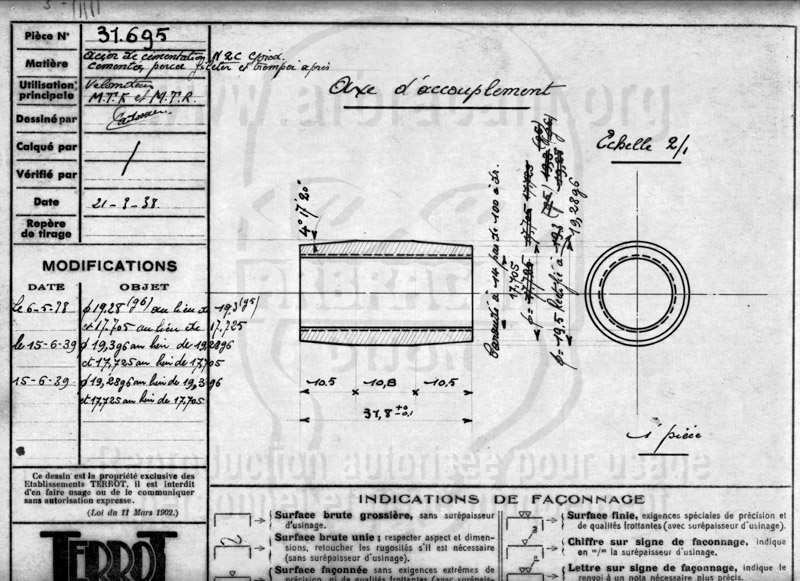 Pièce N° 31.695
Matière acier de cémentation N2C
cémenter percer fileter et tremper après
Utilisation principale Velomoteur
M.T.K et M.T.R.
Dessiné par
Calqué par
Vérifié par
Date 21-3-38
Repère de tirage
Axe d'accouplement
Echelle 2/1
4°17'20"
17.705
19,28g6
10.5 10,8 10,5
31,8
1 pièce
MODIFICATIONS
DATE OBJET
le 6-5-38 ø 19,28 (g6) au lieu de 19,3 (g5)
et 17.705 au lieu de 17.725
le 15-6-39 ø 19,3g6 au lieu de 19,28g6
et 17,725 au lieu de 17,705
15-6-39 ø 19,28g6 au lieu de 19,3g6
et 17,725 au lieu de 17.705
Ce dessin est la propriété exclusive des
Etablissements TERROT, il est interdit
d'en faire usage ou de le communiquer
sans autorisation expresse.
(Loi du 11 Mars 1902.)
TERROT
INDICATIONS DE FAÇONNAGE
Surface brute grossière, sans surépaisseur
d'usinage.
Surface brute unie; respecter aspect et dimen-
sions, retoucher les rugosités s'il est nécessaire
(sans surépaisseur d'usinage).
Surface façonnée sans exigences extrêmes de
précision, ni de qualités frottantes (avec surépais-
Surface finie, exigences spéciales de précision et
de qualités frottantes (avec surépaisseur d'usinage).
Chiffre sur signe de façonnage, indique
en m/m la surépaisseur d'usinage.
Lettre sur signe de façonnage, indique le
renvoi à un nota nécessaire plus précis.
Reproduction autorisée pour usage